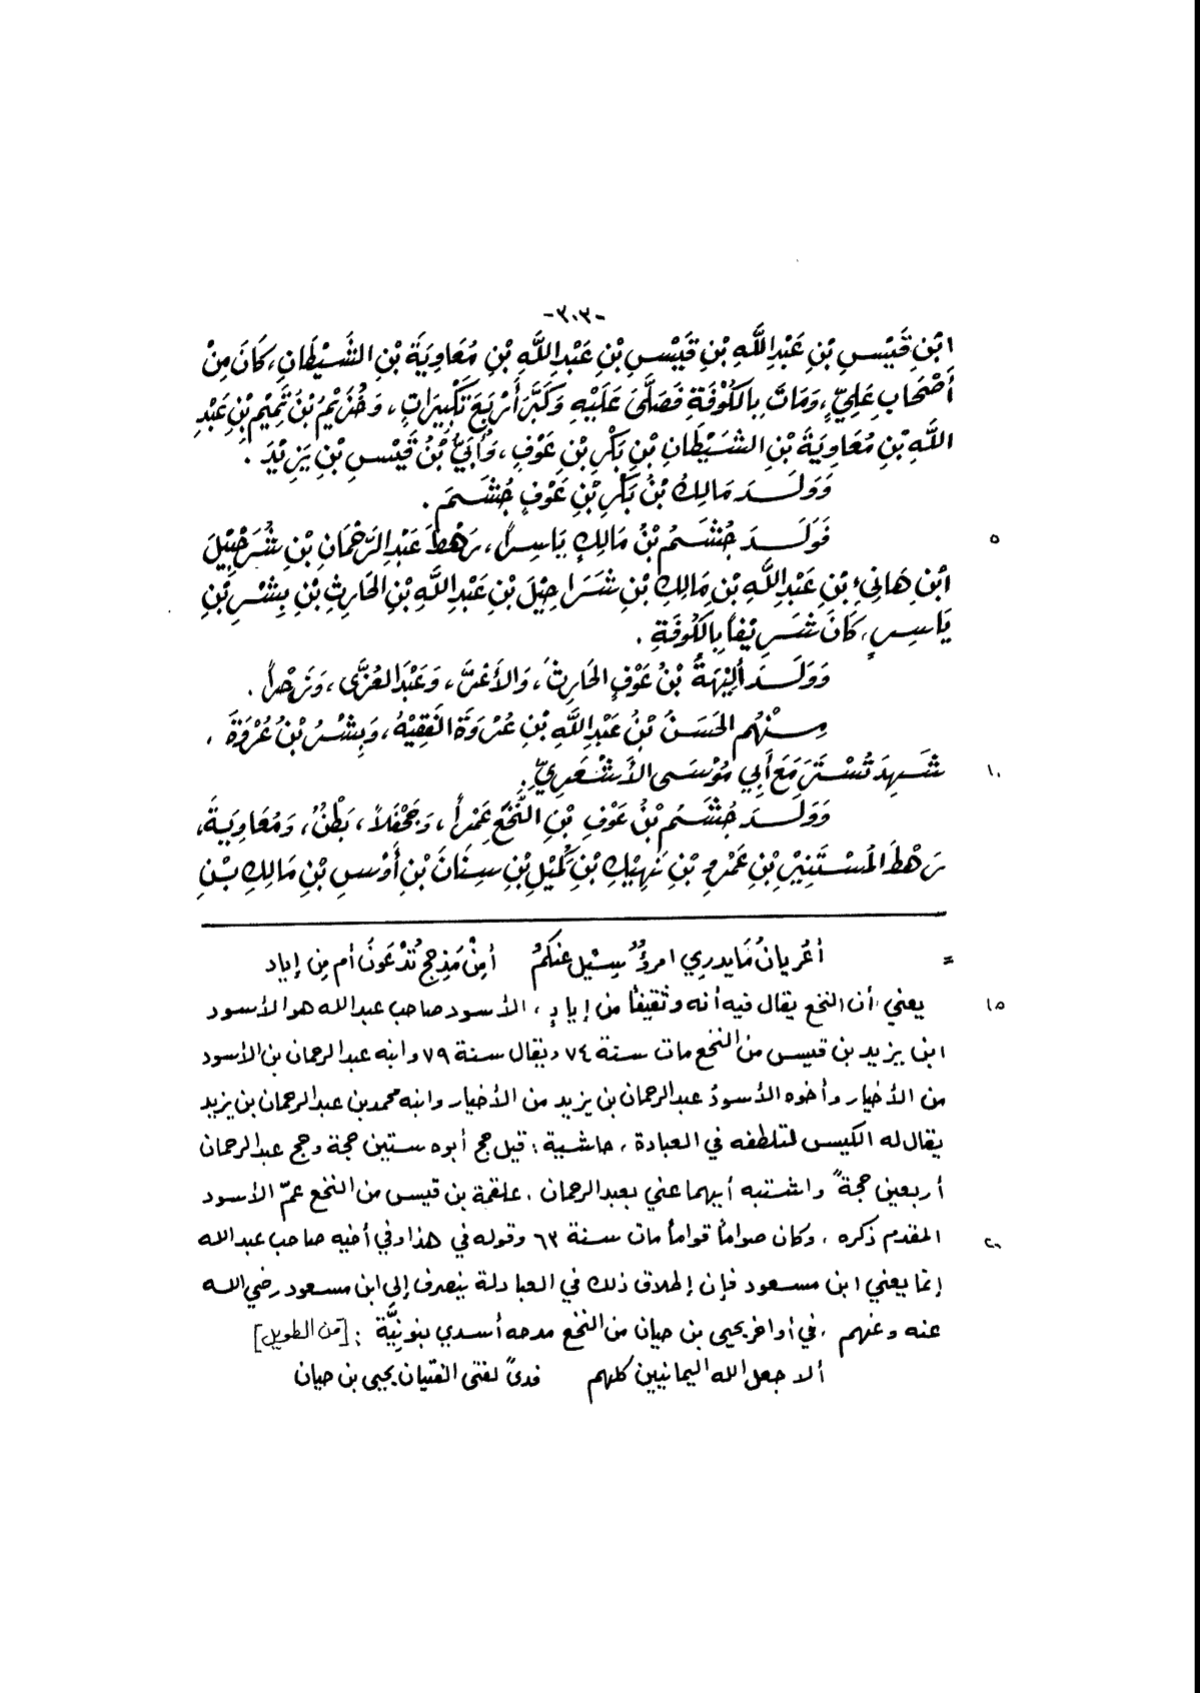 -٣٠٣-
ابْنِ قَيْسِ بْنِ عَبْدِ اللَّهِ بْنِ قَيْسِ بْنِ عَبْدِ اللَّهِ بْنِ مُعَاوِيَةَ بْنِ الشَّيْطَانِ، كَانَ مِنْ
أَصْحَابِ عَلِيٍّ، وَمَاتَ بِالكُوْفَةِ فَصَلَّى عَلَيْهِ وَكَبَّرَ أَرْبَعَ تَكْبِيرَاتٍ، وَخُزَيْمُ بْنُ تَمِيْمِ بْنِ عَبْدِ
اللَّهِ بْنِ مُعَاوِيَةَ بْنِ الشَّيْطَانِ بْنِ بَكْرِ بْنِ عَوْفٍ، وَأُبَيُّ بْنُ قَيْسِ بْنِ يَزِيْدَ.
وَوَلَدَ مَالِكُ بْنُ بَكْرِ بْنِ عَوْفٍ جُشَمَ.
٥ فَوَلَدَ جُشَمُ بْنُ مَالِكٍ يَاسِراً، رَهْطَ عَبْدِ الرَّحْمَانِ بْنِ شُرَحْبِيْلَ
ابْنِ هَانِئِ بْنِ عَبْدِ اللَّهِ بْنِ مَالِكِ بْنِ شَرَاحِيْلَ بْنِ عَبْدِ اللَّهِ بْنِ الحَارِثِ بْنِ بِشْرِ بْنِ
يَاسِرٍ، كَانَ شَرِيْفاً بِالكُوْفَةِ.
وَوَلَدَ أَلِيْهَةُ بْنُ عَوْفٍ الحَارِثَ، وَالأَغَرَّ، وَعَبْدَ العُزَّى، وَبَرْحاً.
مِنْهُم الحَسَنُ بْنُ عَبْدِ اللَّهِ بْنِ عُرْوَةَ الفَقِيْهُ، وَبِشْرُ بْنُ عُرْوَةَ،
١٠ شَهِدَ تُسْتَرَ مَعَ أَبِي مُوْسَى الأَشْعَرِيِّ.
وَوَلَدَ جُشَمُ بْنُ عَوْفِ بْنِ النَّخَعِ عَمْراً، وَجَحْفَلاً، بَطْنٌ، وَمُعَاوِيَةَ،
رَهْطَ المُسْتَنِيْرِ بْنِ عَمْرِو بْنِ نَهِيْكِ بْنِ كُمَيْلِ بْنِ سِنَانَ بْنِ أَوْسِ بْنِ مَالِكِ بْنِ
= أعُريانُ مَا يدري امرؤٌ سِيْلَ عنكُمُ أمِنْ مَذحِجٍ تُدْعَونَ أم مِن إياد
١٥ يعني أن النخع يقال فيه أنه وثقيفاً من إيادٍ، الأسود صاحب عبد الله هو الأسود
ابن يزيد بن قيس من النخع مات سنة ٧٤ ويقال سنة ٧٩ وابنه عبد الرحمان بن الأسود
من الأخيار وأخوه الأسودُ عبد الرحمان بن يزيد من الأخيار وابنه محمد بن عبد الرحمان بن يزيد
يقال له الكيس لتلطفه في العبادة، حاشية: قيل حج أبوه ستين حجة وحج عبد الرحمان
أربعين حجةً واشتبه أيهما عني بعبد الرحمان. علقمة بن قيس من النخع عمّ الأسود
٢٠ المقدم ذكره، وكان صواماً قواماً مات سنة ٦٣ وقوله في هذا وفي أخيه صاحب عبد الله
إنما يعني ابن مسعود فإن إطلاق ذلك في العبادلة ينصرف إلى ابن مسعود رضي الله
عنه وعنهم، في أواخر يحيى بن حيان من النخع مدحه أسدي بنونيَّة: [من الطويل]
ألا جعل الله اليمانيين كلهم فدىً لفتى الفتيان يحيى بن حيان